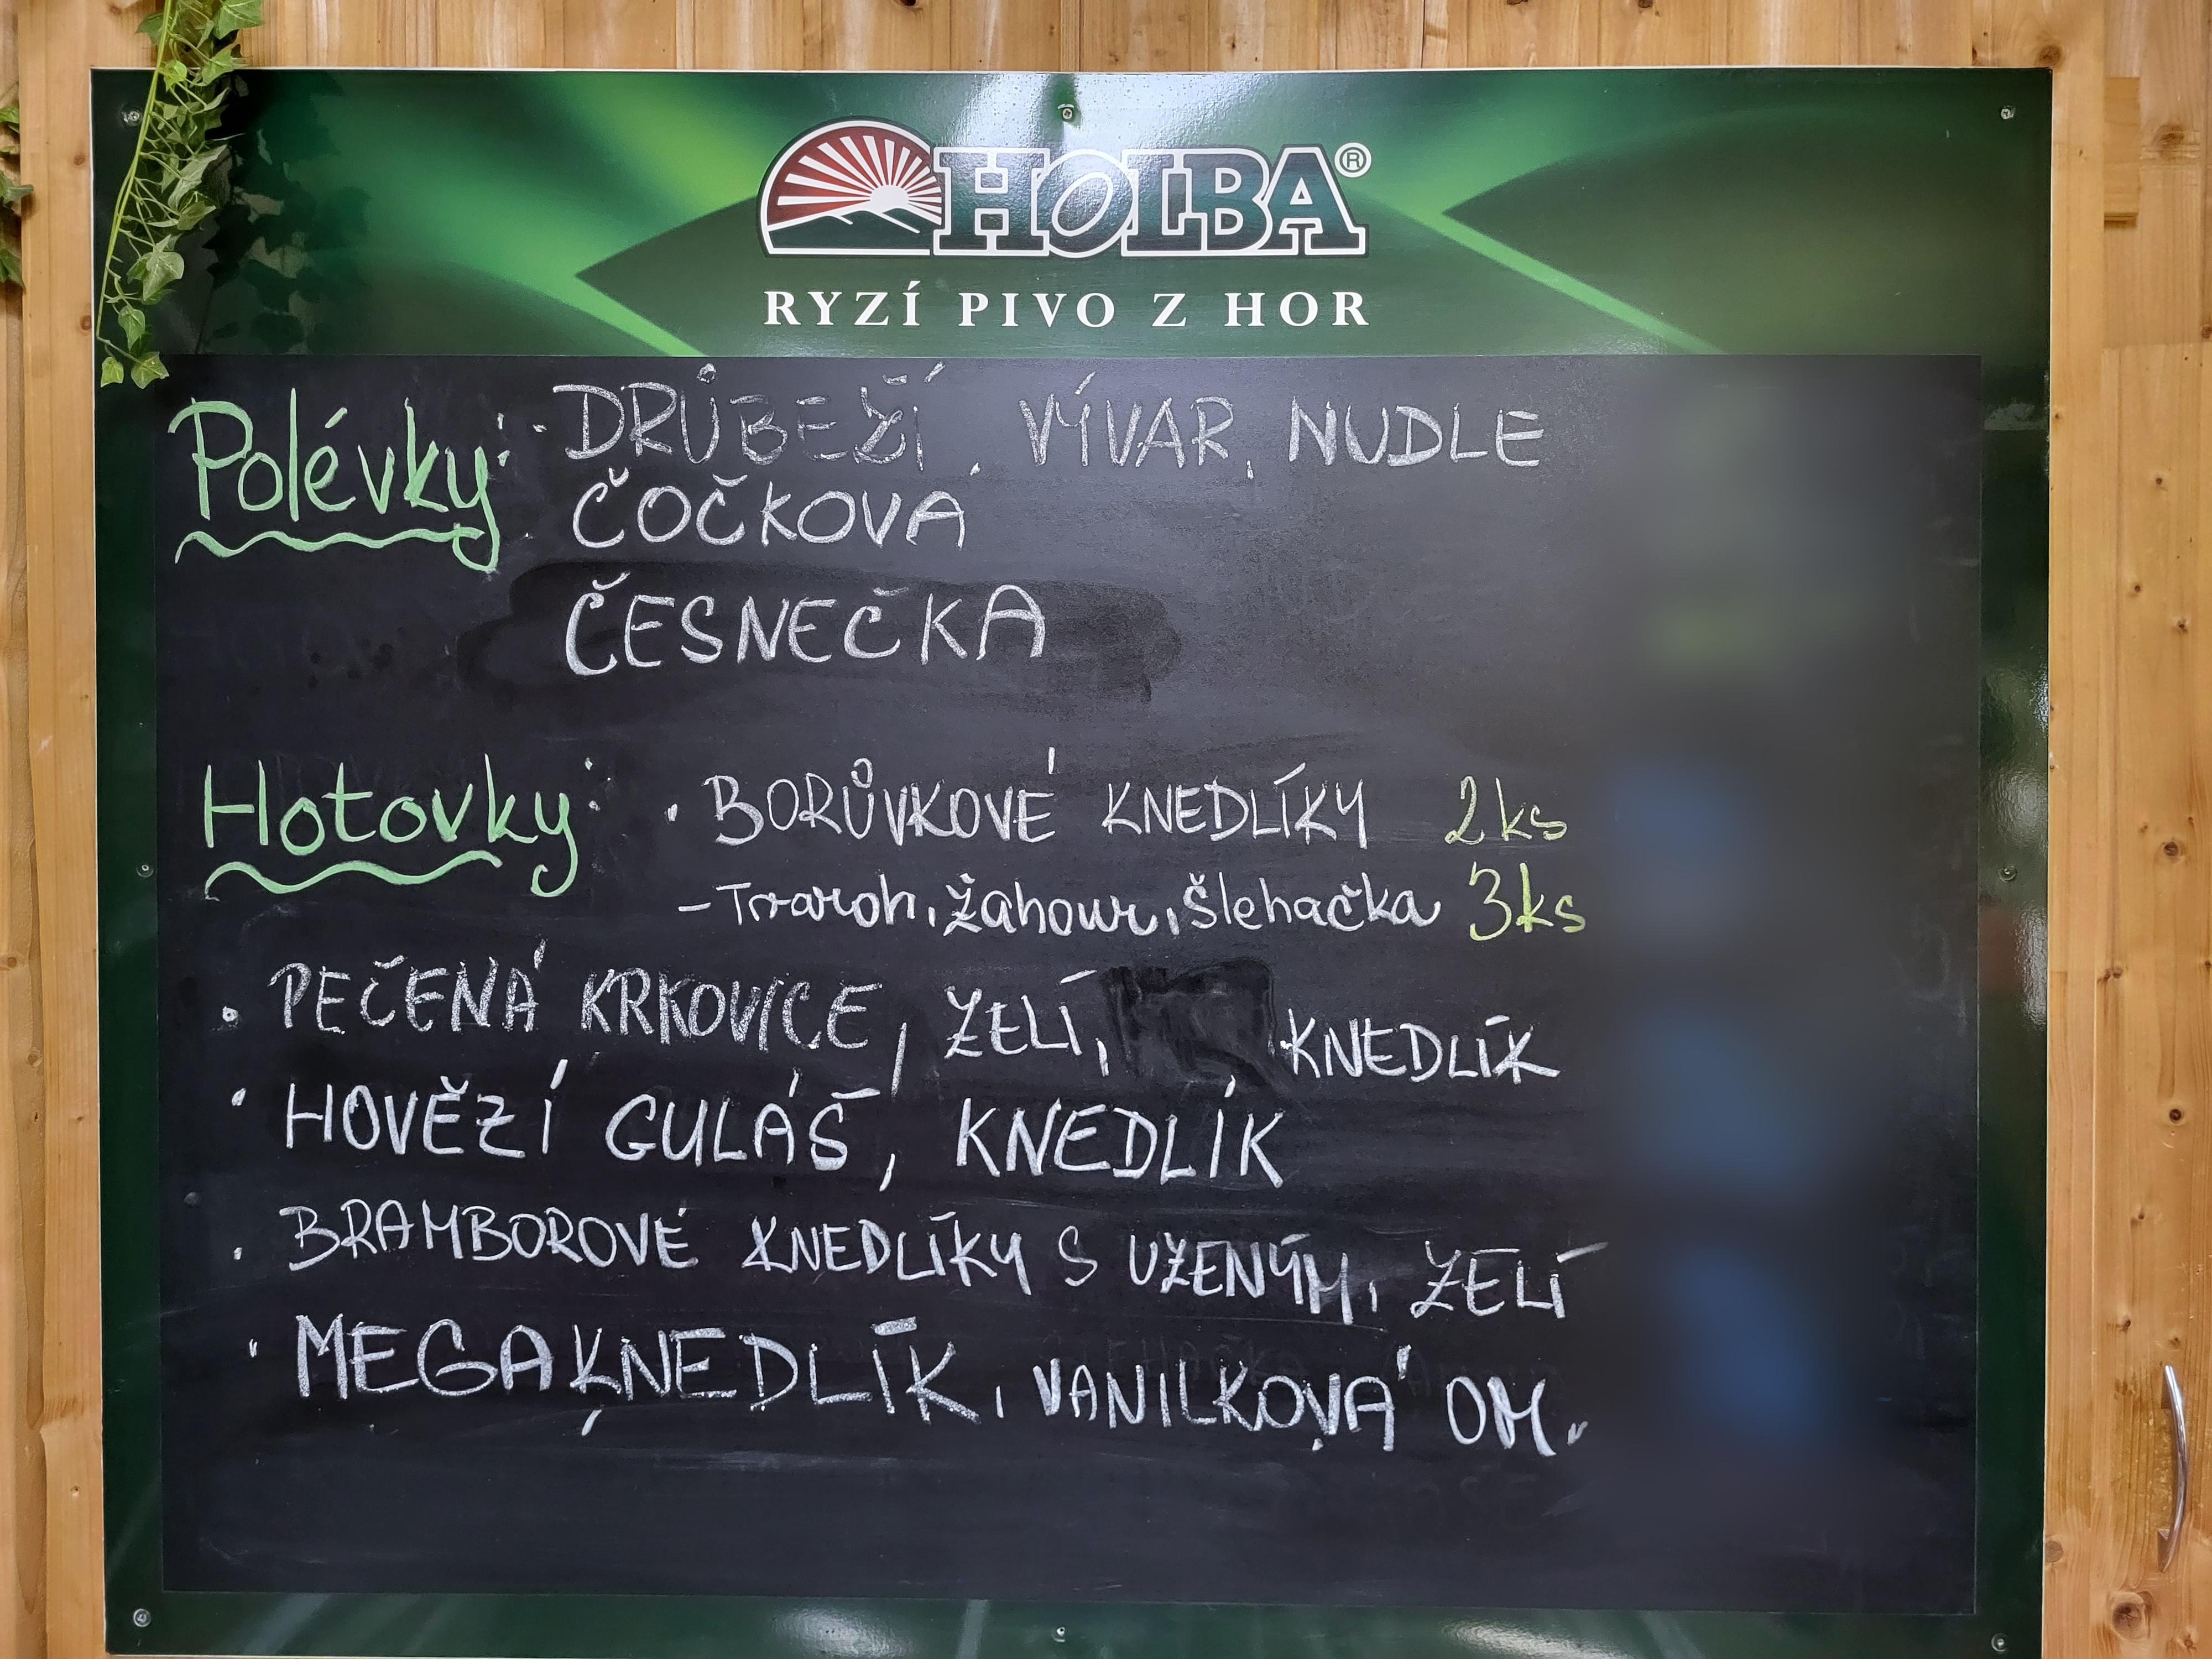 HOLBA®
RYZÍ PIVO Z HOR
Polévky: - DRŮBEŽÍ VÝVAR, NUDLE
ČOČKOVÁ
ČESNEČKA
Hotovky: • BORŮVKOVÉ KNEDLÍKY 2ks
- Tvaroh, žahour, šlehačka 3ks
• PEČENÁ KRKOVICE, ZELÍ, KNEDLÍK
• HOVĚZÍ GULÁŠ, KNEDLÍK
• BRAMBOROVÉ KNEDLÍKY S UZENÝM, ZELÍ
• MEGAKNEDLÍK, VANILKOVÁ OM.